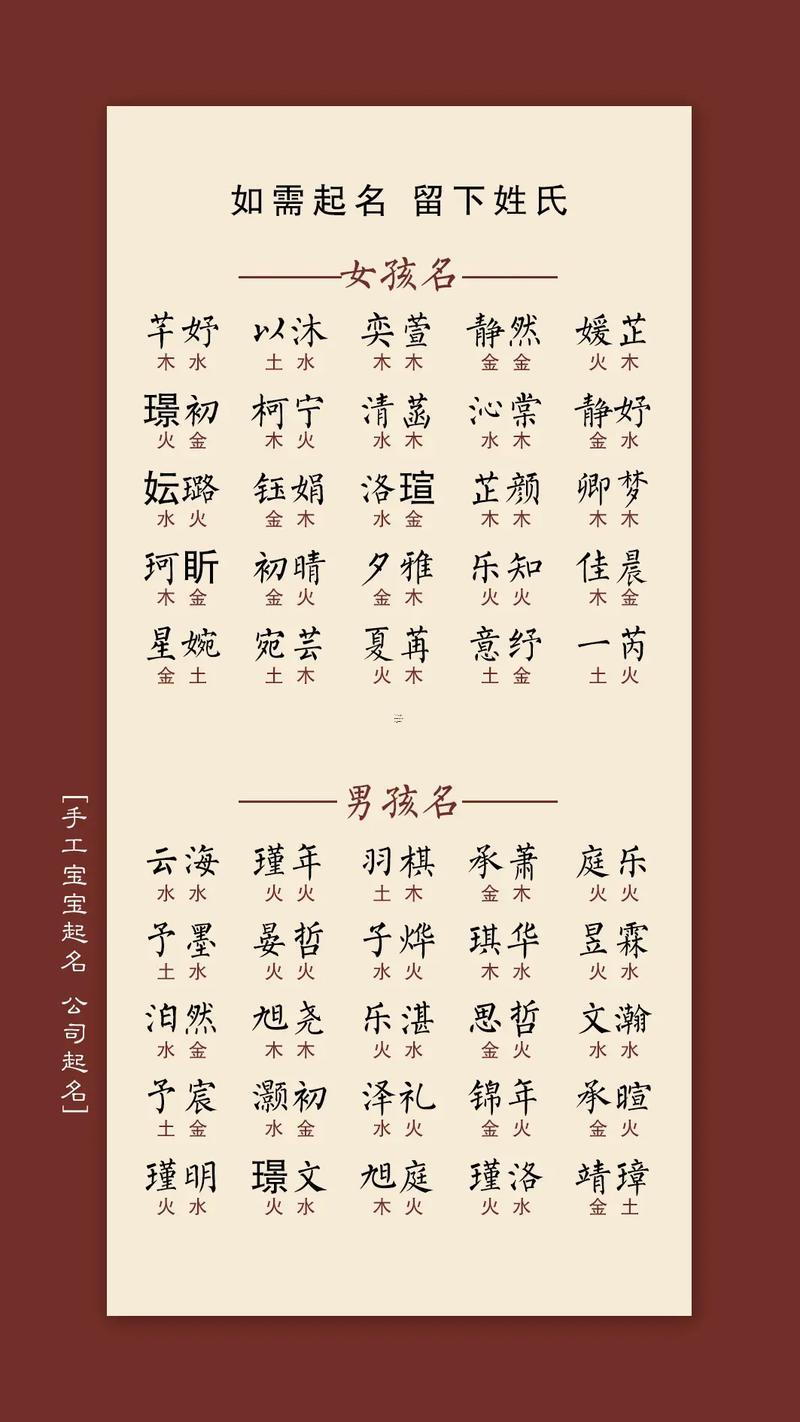 如需起名 留下姓氏
女孩名
芊妤 以沐 奕萱 静然 媛芷
木水 土水 木木 金金 火木
璟初 柯宁 清菡 沁棠 静妤
火金 木火 水木 水木 金水
妘璐 钰娟 洛瑄 芷颜 卿梦
水火 金木 水金 木木 木木
珂昕 初晴 夕雅 乐知 佳晨
木金 金火 金木 火火 木金
星婉 宛芸 夏苒 意纾 一芮
金土 土木 火木 土金 土火
男孩名
云海 瑾年 羽棋 承萧 庭乐
水水 火火 土木 金木 火火
予墨 晏哲 子烨 琪华 昱霖
土水 火火 水火 木水 火水
泊然 旭尧 乐湛 思哲 文瀚
水金 木木 火水 金火 水水
予宸 灏初 泽礼 锦年 承暄
土金 水金 水火 金火 金火
瑾明 璟文 旭庭 瑾洛 靖璋
火水 火水 木火 火水 金土
[手工宝宝起名 公司起名]